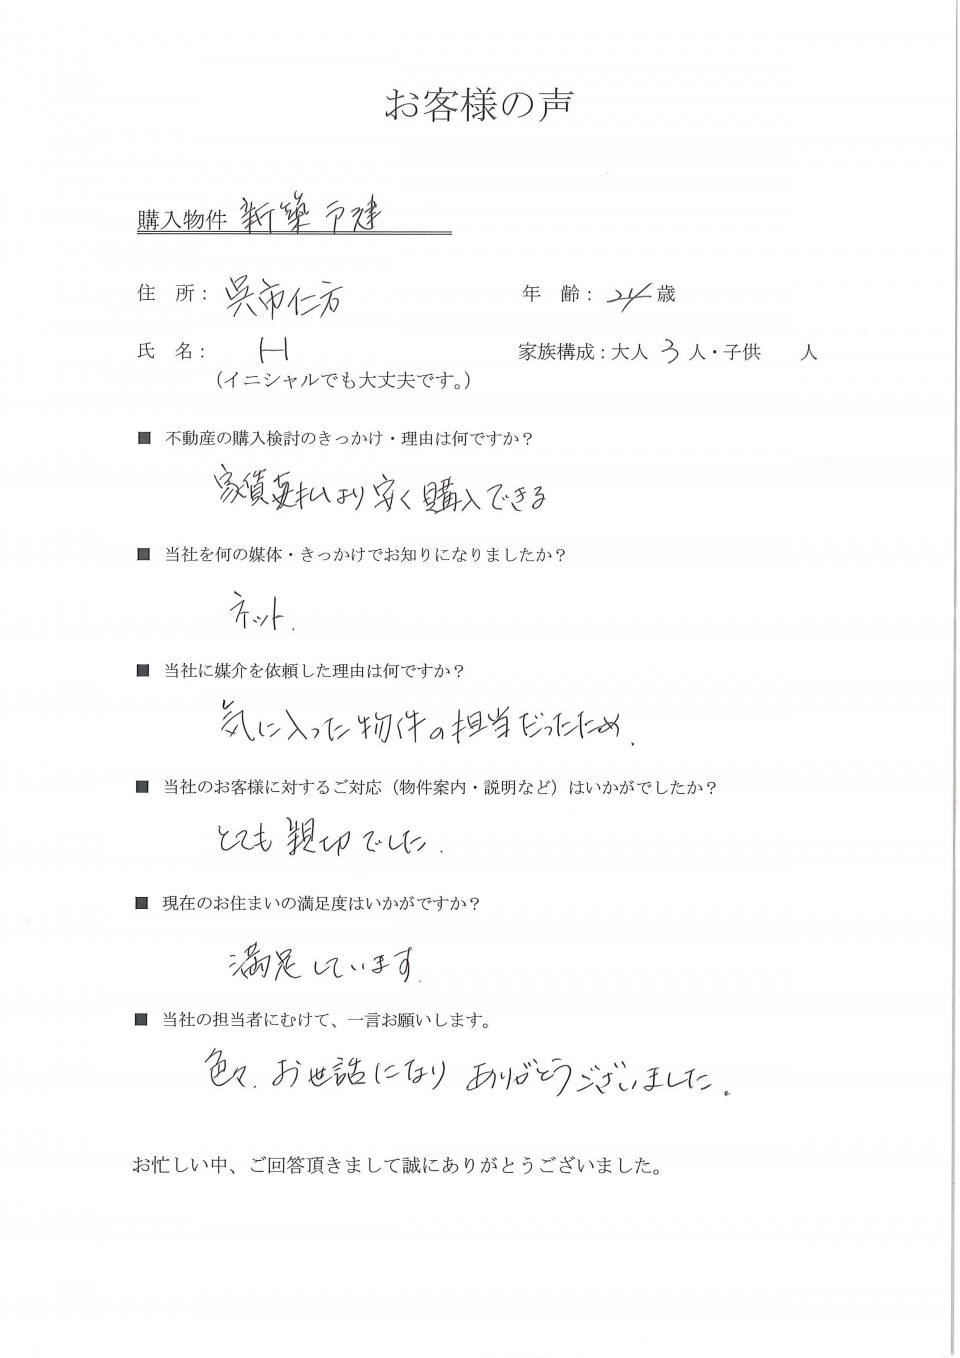 お客様の声
購入物件 新築戸建
住 所： 呉市仁方 年 齢： 24 歳
氏 名： H 家族構成：大人 3 人・子供 人
（イニシャルでも大丈夫です。）
■ 不動産の購入検討のきっかけ・理由は何ですか？
家賃支払いより安く購入できる
■ 当社を何の媒体・きっかけでお知りになりましたか？
ネット.
■ 当社に媒介を依頼した理由は何ですか？
気に入った物件の担当だったため.
■ 当社のお客様に対するご対応（物件案内・説明など）はいかがでしたか？
とても親切でした.
■ 現在のお住まいの満足度はいかがですか？
満足しています.
■ 当社の担当者にむけて、一言お願いします。
色々.お世話になりありがとうございました。
お忙しい中、ご回答頂きまして誠にありがとうございました。